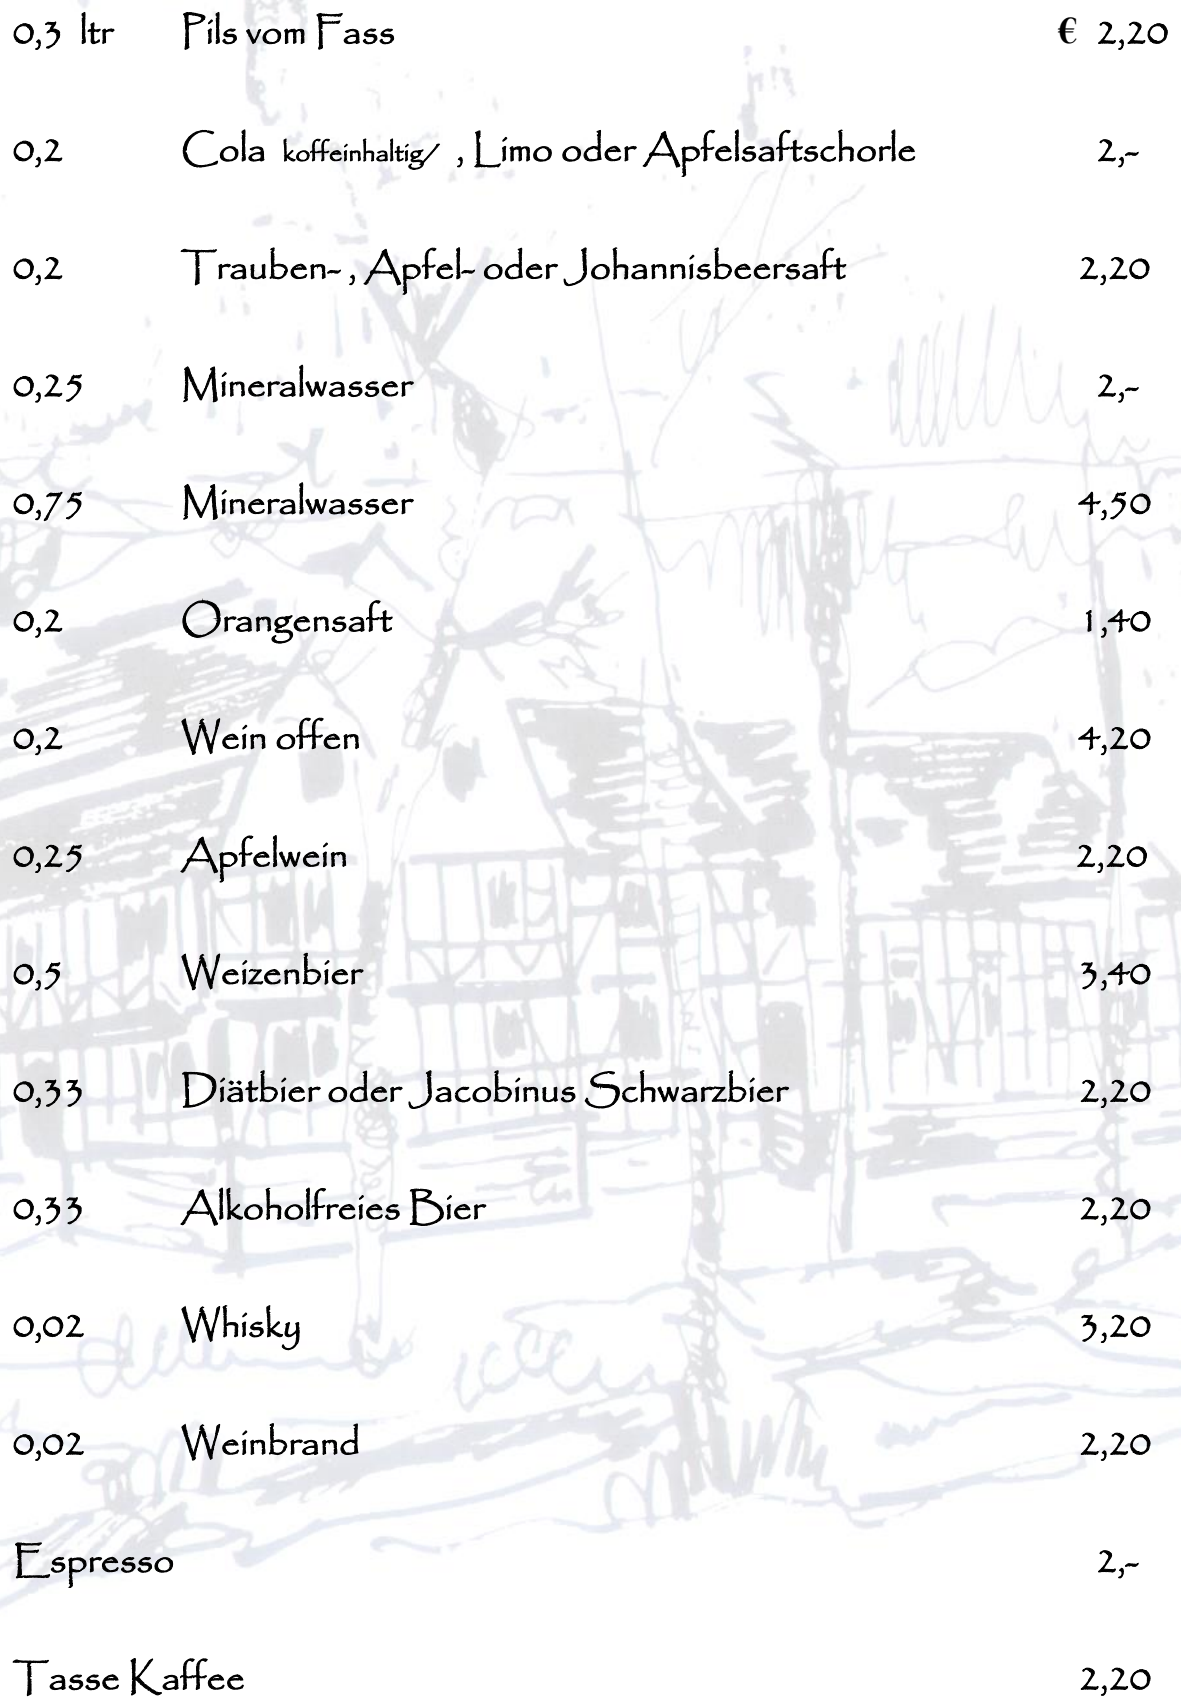 0,3 ltr Pils vom Fass € 2,20
0,2 Cola koffeinhaltig/ , Limo oder Apfelsaftschorle 2,-
0,2 Trauben- , Apfel- oder Johannisbeersaft 2,20
0,25 Mineralwasser 2,-
0,75 Mineralwasser 4,50
0,2 Orangensaft 1,40
0,2 Wein offen 4,20
0,25 Apfelwein 2,20
0,5 Weizenbier 3,40
0,33 Diätbier oder Jacobinus Schwarzbier 2,20
0,33 Alkoholfreies Bier 2,20
0,02 Whisky 3,20
0,02 Weinbrand 2,20
Espresso 2,-
Tasse Kaffee 2,20